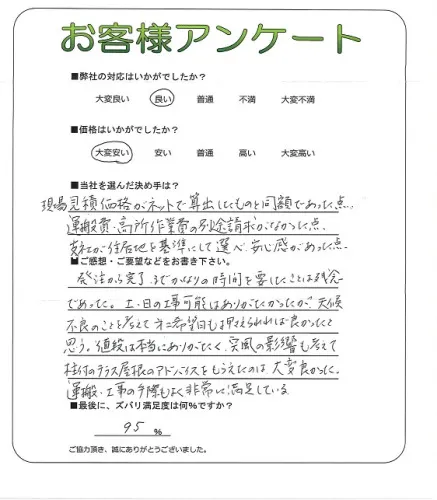 お客様アンケート
■弊社の対応はいかがでしたか?
大変良い 良い 普通 不満 大変不満
■価格はいかがでしたか?
大変安い 安い 普通 高い 大変高い
■当社を選んだ決め手は?
現場見積価格がネットで算出したものと同額であった点
運搬費・高所作業費の別途請求がなかった点.
支社が住居地を基準にして選べ、安心感があった点
■ご感想・ご要望などをお書き下さい。
発注から完了までかなりの時間を要したことは残念
であった。土・日の工事可能はありがたかったが、天候
不良のことを考えて第二希望日も押えられれば良かったと
思う。値段は本当にありがたく、突風の影響も考えて
柱付のテラス屋根のアドバイスをもらえたのは大変良かった。
運搬・工事の手際もよく非常に満足している
■最後に、ズバリ満足度は何%ですか?
95 %
ご協力頂き、誠にありがとうございました。